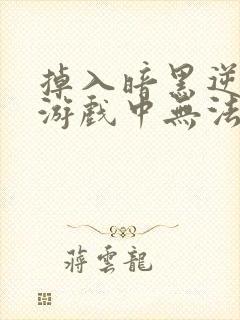 掉入暗黑逆
游戲中無法
蔣雲龍